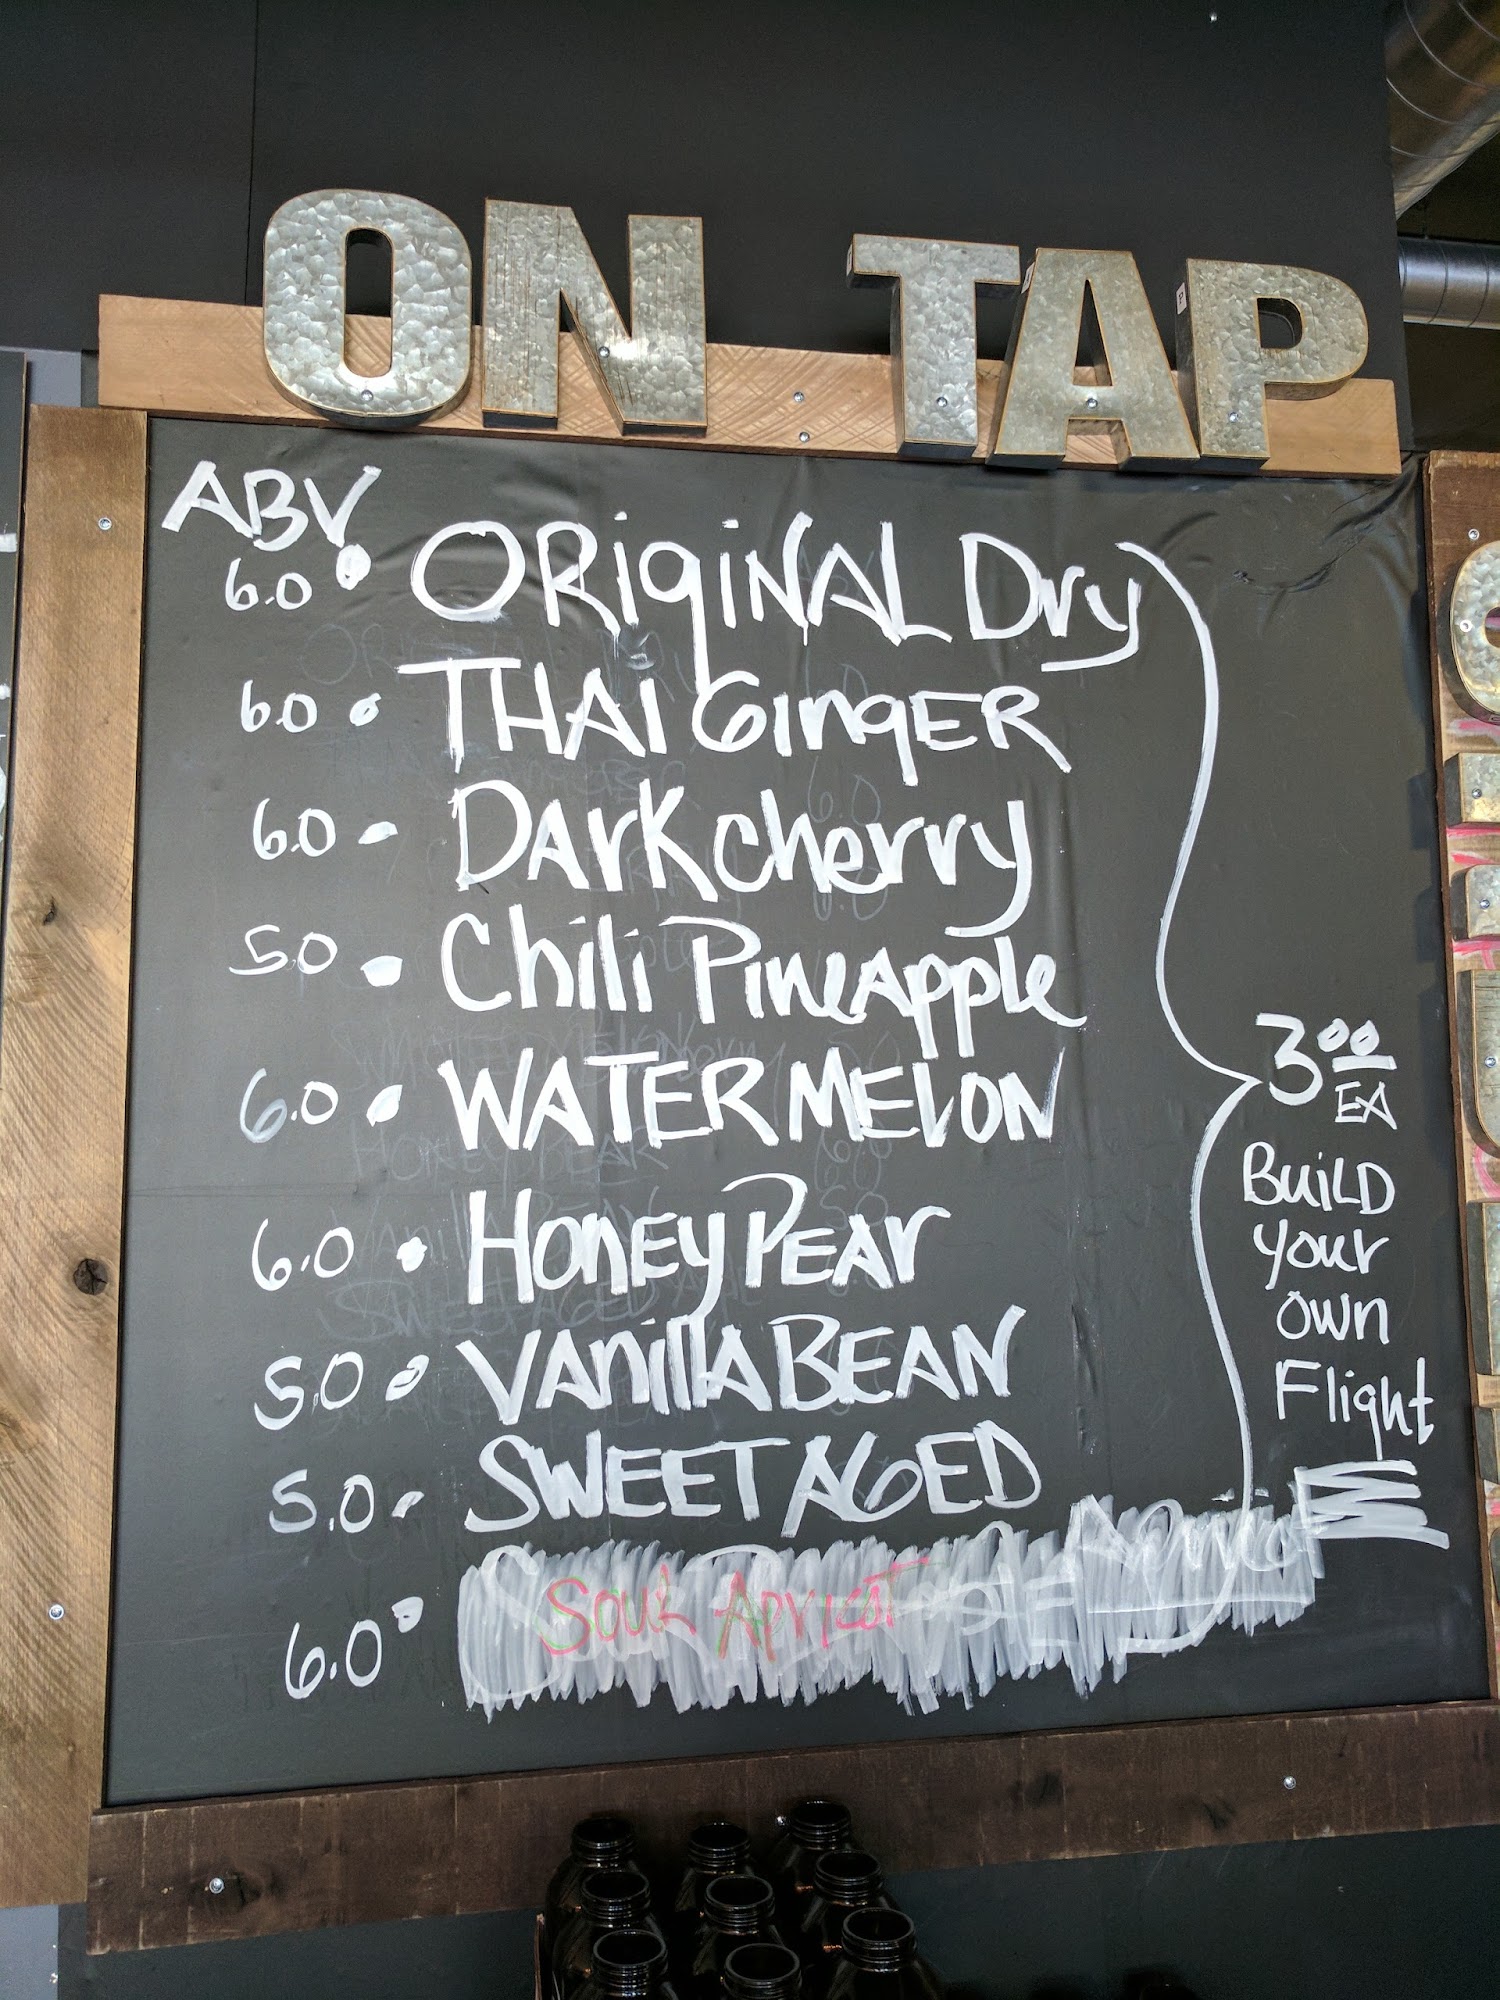 ON TAP
ABV
6.0 • ORIGINAL Dry
6.0 • THAI GINGER
6.0 • DARK cherry
5.0 • Chili PINEApple
6.0 • WATERMELON
6.0 • HONEY PEAr
5.0 • VANillA BEAN
5.0 • SWEET AGED
6.0 • SOUR APricOT
3.00
EA
BUILD
your
own
Flight